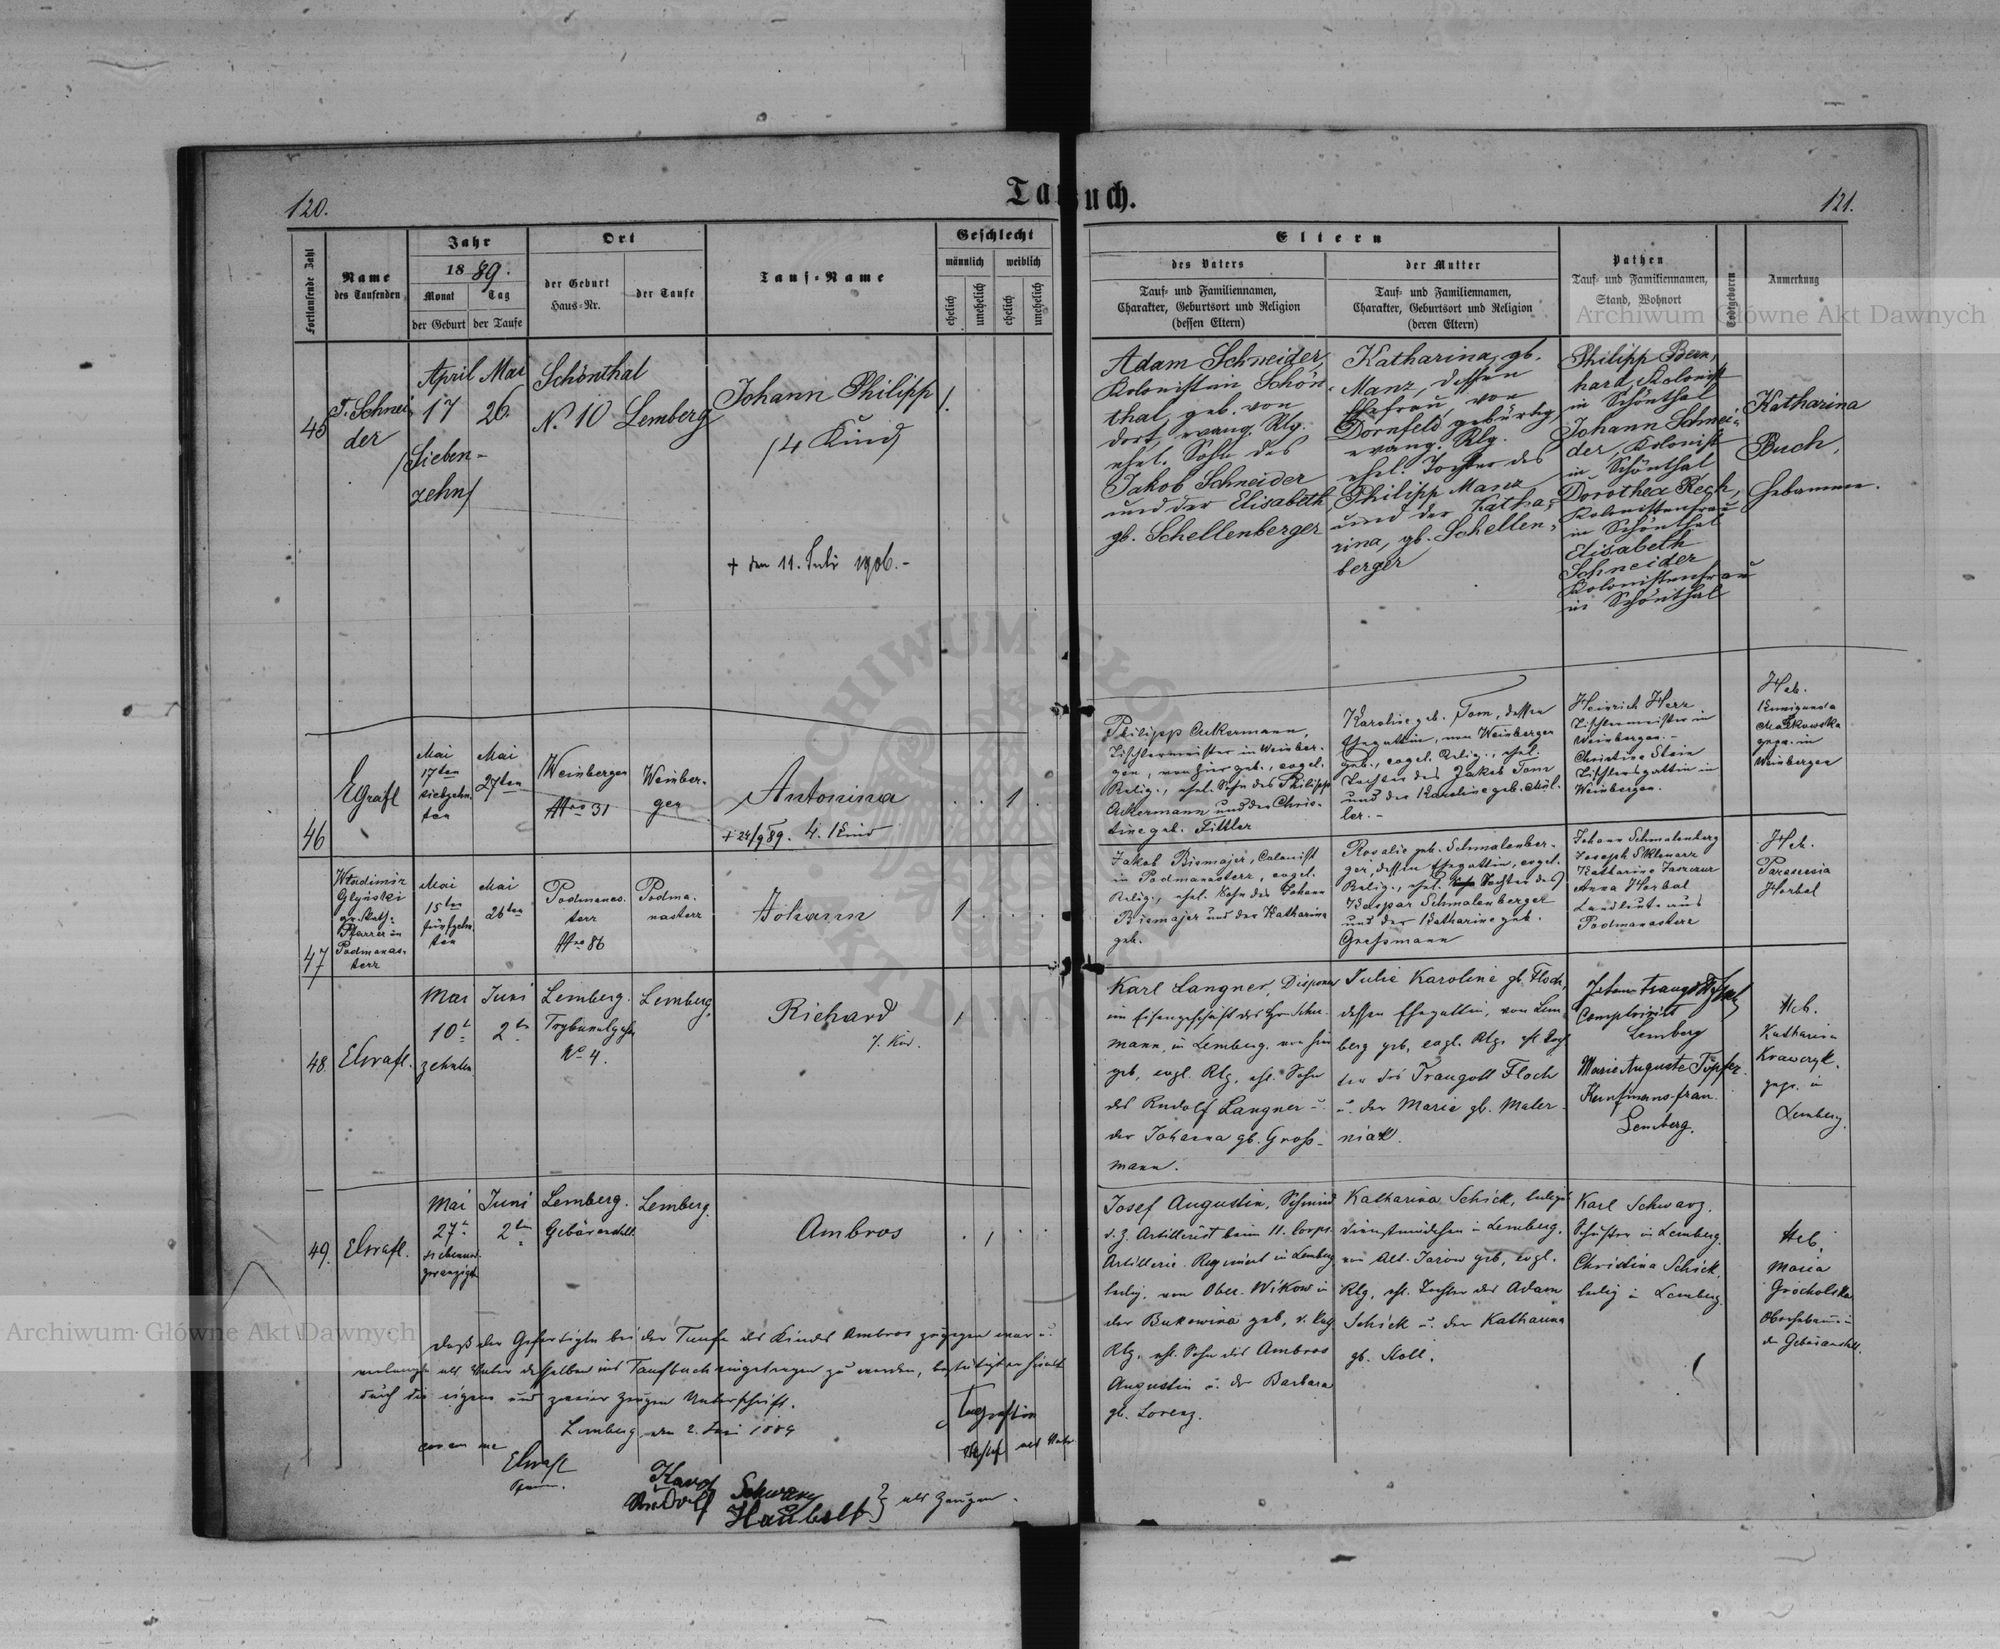 120.
Tau uch.
121.
Fortlaufende Zahl
Name
des Taufenden
Jahr
1889.
Monat
Tag
der Geburt
der Taufe
Ort
der Geburt
Haus-Nr.
der Taufe
Tauf-Name
Geschlecht
männlich
weiblich
ehelich
unehelich
ehelich
unehelich
Eltern
des Vaters
Tauf- und Familiennamen,
Charakter, Geburtsort und Religion
(dessen Eltern)
der Mutter
Tauf- und Familiennamen,
Charakter, Geburtsort und Religion
(deren Eltern)
Pathen
Tauf- und Familiennamen,
Stand, Wohnort
Todtgeboren
Anmerkung
45
Schnei
der
April
17
/Sieben-
zehn/
Mai
26
Schönthal
N. 10
Lemberg
Johann Philipp
/4 Kind/
+ den 11. Juli 1906.-
1.
Adam Schneider,
Kolonist in Schön-
thal, geb. von
dort, evang. Rlg.
ehel. Sohn des
Jakob Schneider
und der Elisabeth
gb. Schellenberger
Katharina, gb.
Manz, dessen
Ehefrau, von
Dornfeld gebürtig,
evang. Rlg.
ehel. Tochter des
Philipp Manz
und der Katha-
rina, gb. Schellen-
berger
Philipp Bern-
hard, Kolonist
in Schönthal
Johann Schnei-
der, Kolonist
in Schönthal
Dorothea Rech,
Kolonistenfrau
in Schönthal
Elisabeth
Schneider
Kolonistenfrau
in Schönthal
Katharina
Buch,
Hebamme.
46
EGrafl
Mai
17ten
siebzehn-
ten
Mai
27ten
Weinbergen
Nro 31
Weinber-
gen
Antonina
+ 24/9 89. 4. Kind
1
Philipp Ackermann,
Tischlermeister in Weinber-
gen, von hier geb., evgel.
Relig., ehel. Sohn des Philipp
Ackermann und der Chris-
tine geb. Fittler
Karoline geb. Tom, dessen
Ehegattin, von Weinbergen
geb., evgel. Relig., ehel.
Tochter des Jakob Tom
und der Karoline geb. Mül-
ler.-
Heinrich Herz
Tischlermeister in
Weinbergen.-
Christine Stein
Tischlersgattin in
Weinbergen.
Heb.
Kunigunda
Markowska
gepr. in
Weinbergen
47
Wladimir
Glyński
gr. kath.
Pfarrer in
Podmanas-
terz
Mai
15ten
fünfzehn-
ten
Mai
26ten
Podmanas-
terz
Nro 86
Podma-
nasterz
Johann
1
Jakob Bismajer, Colonist
in Podmanasterz, evgel.
Relig., ehel. Sohn des Johann
Bismajer und der Katharina
geb.
Rosalie geb. Schmalenber-
ger, dessen Ehegattin, evgel.
Relig., ehel. Tochter des
Kaspar Schmalenberger
und der Katharine geb.
Grossmann
Johann Schmalenberg
Joseph Sklenarz
Katharina
Anna Horbal
Landleute aus
Podmanasterz
Heb.
Parascevia
Horbal
48.
Elsrafl.
Mai
10t
zehnten
Juni
2ten
Lemberg.
Trybunalgasse
No 4.
Lemberg.
Richard
7. Kind.
1
Karl Langner, Disponent
im Eisengeschäft des H. Schu-
mann in Lemberg, von hier
geb, evgl. Rlg, ehl. Sohn
des Rudolf Langner u.
der Johanna gb. Gross-
mann.
Julie Karoline gb. Floch,
dessen Ehegattin, von Lem-
berg geb, evgl. Rlg. ehl. Toch-
ter des Traugott Floch
u. der Marie gb. Mater-
niak.
Johann Traugott
Comptoirist
Lemberg
Marie Auguste Töpfer
Kaufmanns-frau.
Lemberg.
Heb.
Katharina
Krawczyk.
gepr. in
Lemberg.
49.
Elsrafl.
Mai
27t
siebenund-
zwanzigst
Juni
2ten
Lemberg.
Gebäranstalt
Lemberg.
Ambros
1
Josef Augustin, Schmied
d. z. Artillerist beim 11. Corps-
Artillerie-Regiment in Lemberg
ledig, von Ober-Wikow in
der Bukowina geb, r. kath
Rlg, ehl. Sohn des Ambros
Augustin u. der Barbara
gb. Lorenz.
Katharina Schick, ledig
Dienstmädchen in Lemberg,
von Alt-Jazow geb, evgl.
Rlg, ehl. Tochter des Adam
Schick u. der Katharina
gb. Stoll.
Karl Schwarz,
Schuster in Lemberg.
Christina Schick,
ledig in Lemberg.
Heb.
Maria
Grocholska
Oberhebamme in
der Gebäranstalt.
Dass der Gefertigte bei der Taufe des Kindes Ambros zugegen war u.
verlangte als Vater desselben ins Taufbuch eingetragen zu werden, bestätigt er hiemit
durch die eigene und zweier Zeugen Unterschrift.
Lemberg, den 2. Juni 1889
coram me
Elsrafl
Augustin
Josef als Vater
Karl Schwarz
Rudolf Haubolt } als Zeugen.
Archiwum Główne Akt Dawnych
Archiwum Główne Akt Dawnych